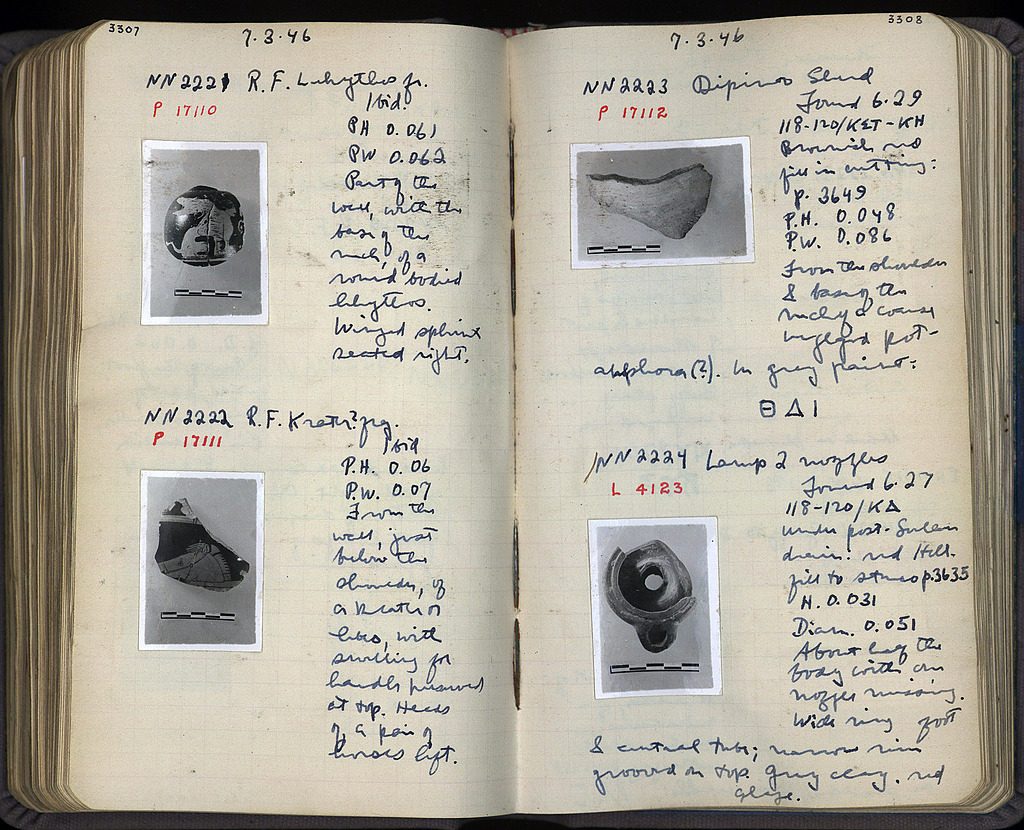 3307
7·3·46
NN 2221 R.F. Lekythos fr.
P 17110
Ibid.
PH 0.061
PW 0.062
Part of the
wall, with the
base of the
neck, of a
round bodied
lekythos.
Winged sphinx
seated right.
NN 2222 R.F. Krater? frg.
P 17111
Ibid
P.H. 0.06
P.W. 0.07
From the
wall, just
below the
shoulder, of
a krater or
lebes, with
swelling for
handle preserved
at top. Heads
of a pair of
horses left.
3308
7·3·46
NN 2223 Dipinto Sherd
P 17112
Found 6·29
118-120/KΣT-KH
Brownish red
fill in cutting:
p. 3649
P.H. 0.048
P.W. 0.086
From the shoulder
& base of the
neck of a coarse
unglazed pot-
amphora(?). In grey paint:
Θ Δ Ι
NN 2224 Lamp 2 nozzles
L 4123
Found 6·27
118-120/KΔ
under post-Sullan
drain. red Hell.
fill to p. 3635
H. 0.031
Diam. 0.051
About half the
body with one
nozzle missing.
Wide ring foot
& central tube; narrow rim
grooved on top. Grey clay. red
glaze.